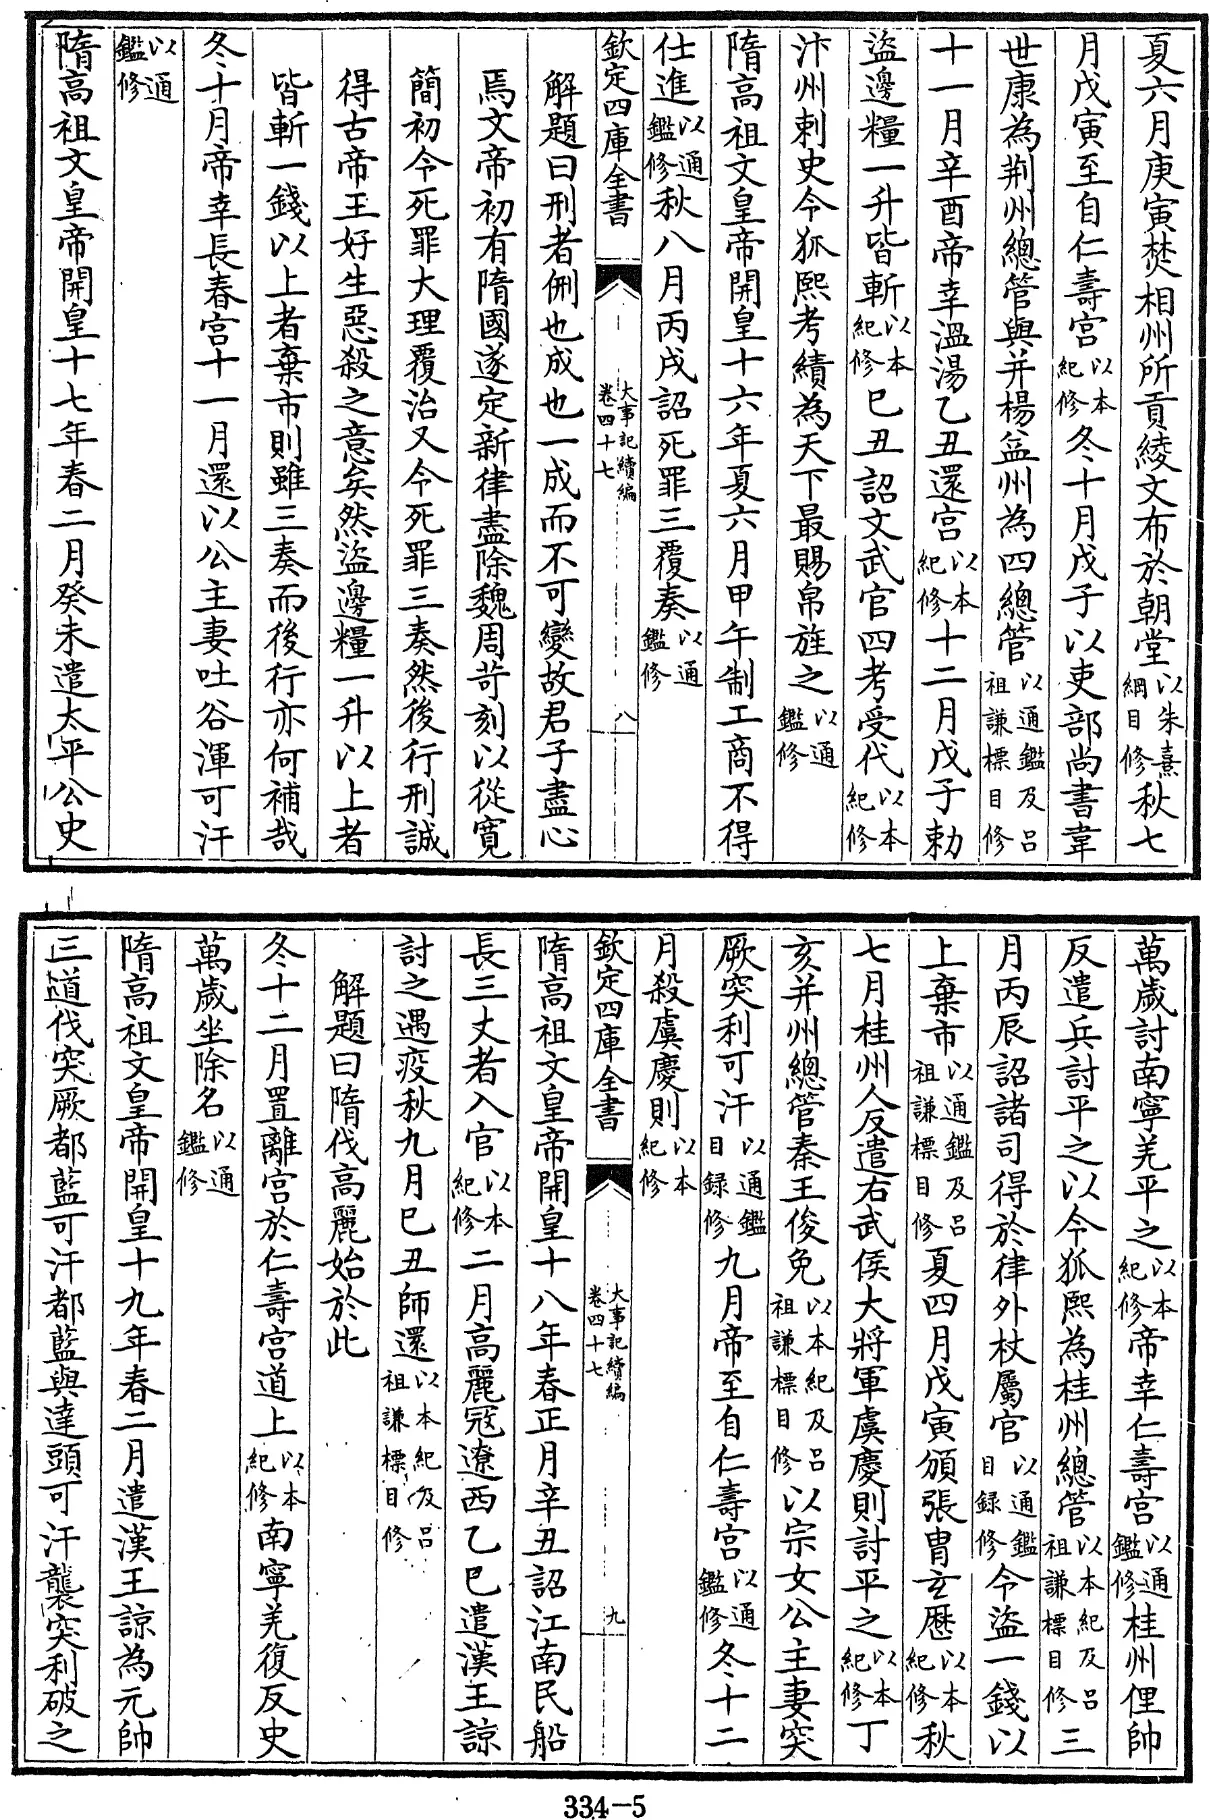 夏六月庚寅焚相州所貢綾文布於朝堂以朱熹綱目修秋七
月戊寅至自仁壽宮以本紀修冬十月戊子以吏部尚書韋
世康為荆州總管與并楊益州為四總管以通鑑及呂祖謙標目修
十一月辛酉帝幸溫湯乙丑還宮以本紀修十二月戊子勅
盜邊糧一升皆斬以本紀修巳丑詔文武官四考受代以本紀修
汴州刺史令狐熙考績為天下最賜帛旌之以通鑑修
隋高祖文皇帝開皇十六年夏六月甲午制工商不得
仕進以通鑑修秋八月丙戌詔死罪三覆奏以通鑑修
欽定四庫全書 大事記續編卷四十七 八
解題曰刑者侀也成也一成而不可變故君子盡心
焉文帝初有隋國遂定新律盡除魏周苛刻以從寬
簡初令死罪大理覆治又令死罪三奏然後行刑誠
得古帝王好生惡殺之意矣然盜邊糧一升以上者
皆斬一錢以上者棄市則雖三奏而後行亦何補哉
冬十月帝幸長春宮十一月還以公主妻吐谷渾可汗
以通鑑修
隋高祖文皇帝開皇十七年春二月癸未遣太平公史
萬歲討南寧羌平之以本紀修帝幸仁壽宮以通鑑修桂州俚帥
反遣兵討平之以令狐熙為桂州總管以本紀及呂祖謙標目修三
月丙辰詔諸司得於律外杖屬官以通鑑目録修令盜一錢以
上棄市以通鑑及呂祖謙標目修夏四月戊寅頒張胄玄歷以本紀修秋
七月桂州人反遣右武侯大將軍虞慶則討平之以本紀修丁
亥并州總管秦王俊免以本紀及呂祖謙標目修以宗女公主妻突
厥突利可汗以通鑑目録修九月帝至自仁壽宮以通鑑修冬十二
月殺虞慶則以本紀修
欽定四庫全書 大事記續編卷四十七 九
隋高祖文皇帝開皇十八年春正月辛丑詔江南民船
長三丈者入官以本紀修二月高麗冦遼西乙巳遣漢王諒
討之遇疫秋九月巳丑師還以本紀及呂祖謙標目修
解題曰隋伐高麗始於此
冬十二月置離宮於仁壽宮道上以本紀修南寧羌復反史
萬歲坐除名以通鑑修
隋高祖文皇帝開皇十九年春二月遣漢王諒為元帥
三道伐突厥都藍可汗都藍與達頭可汗襲突利破之
334-5